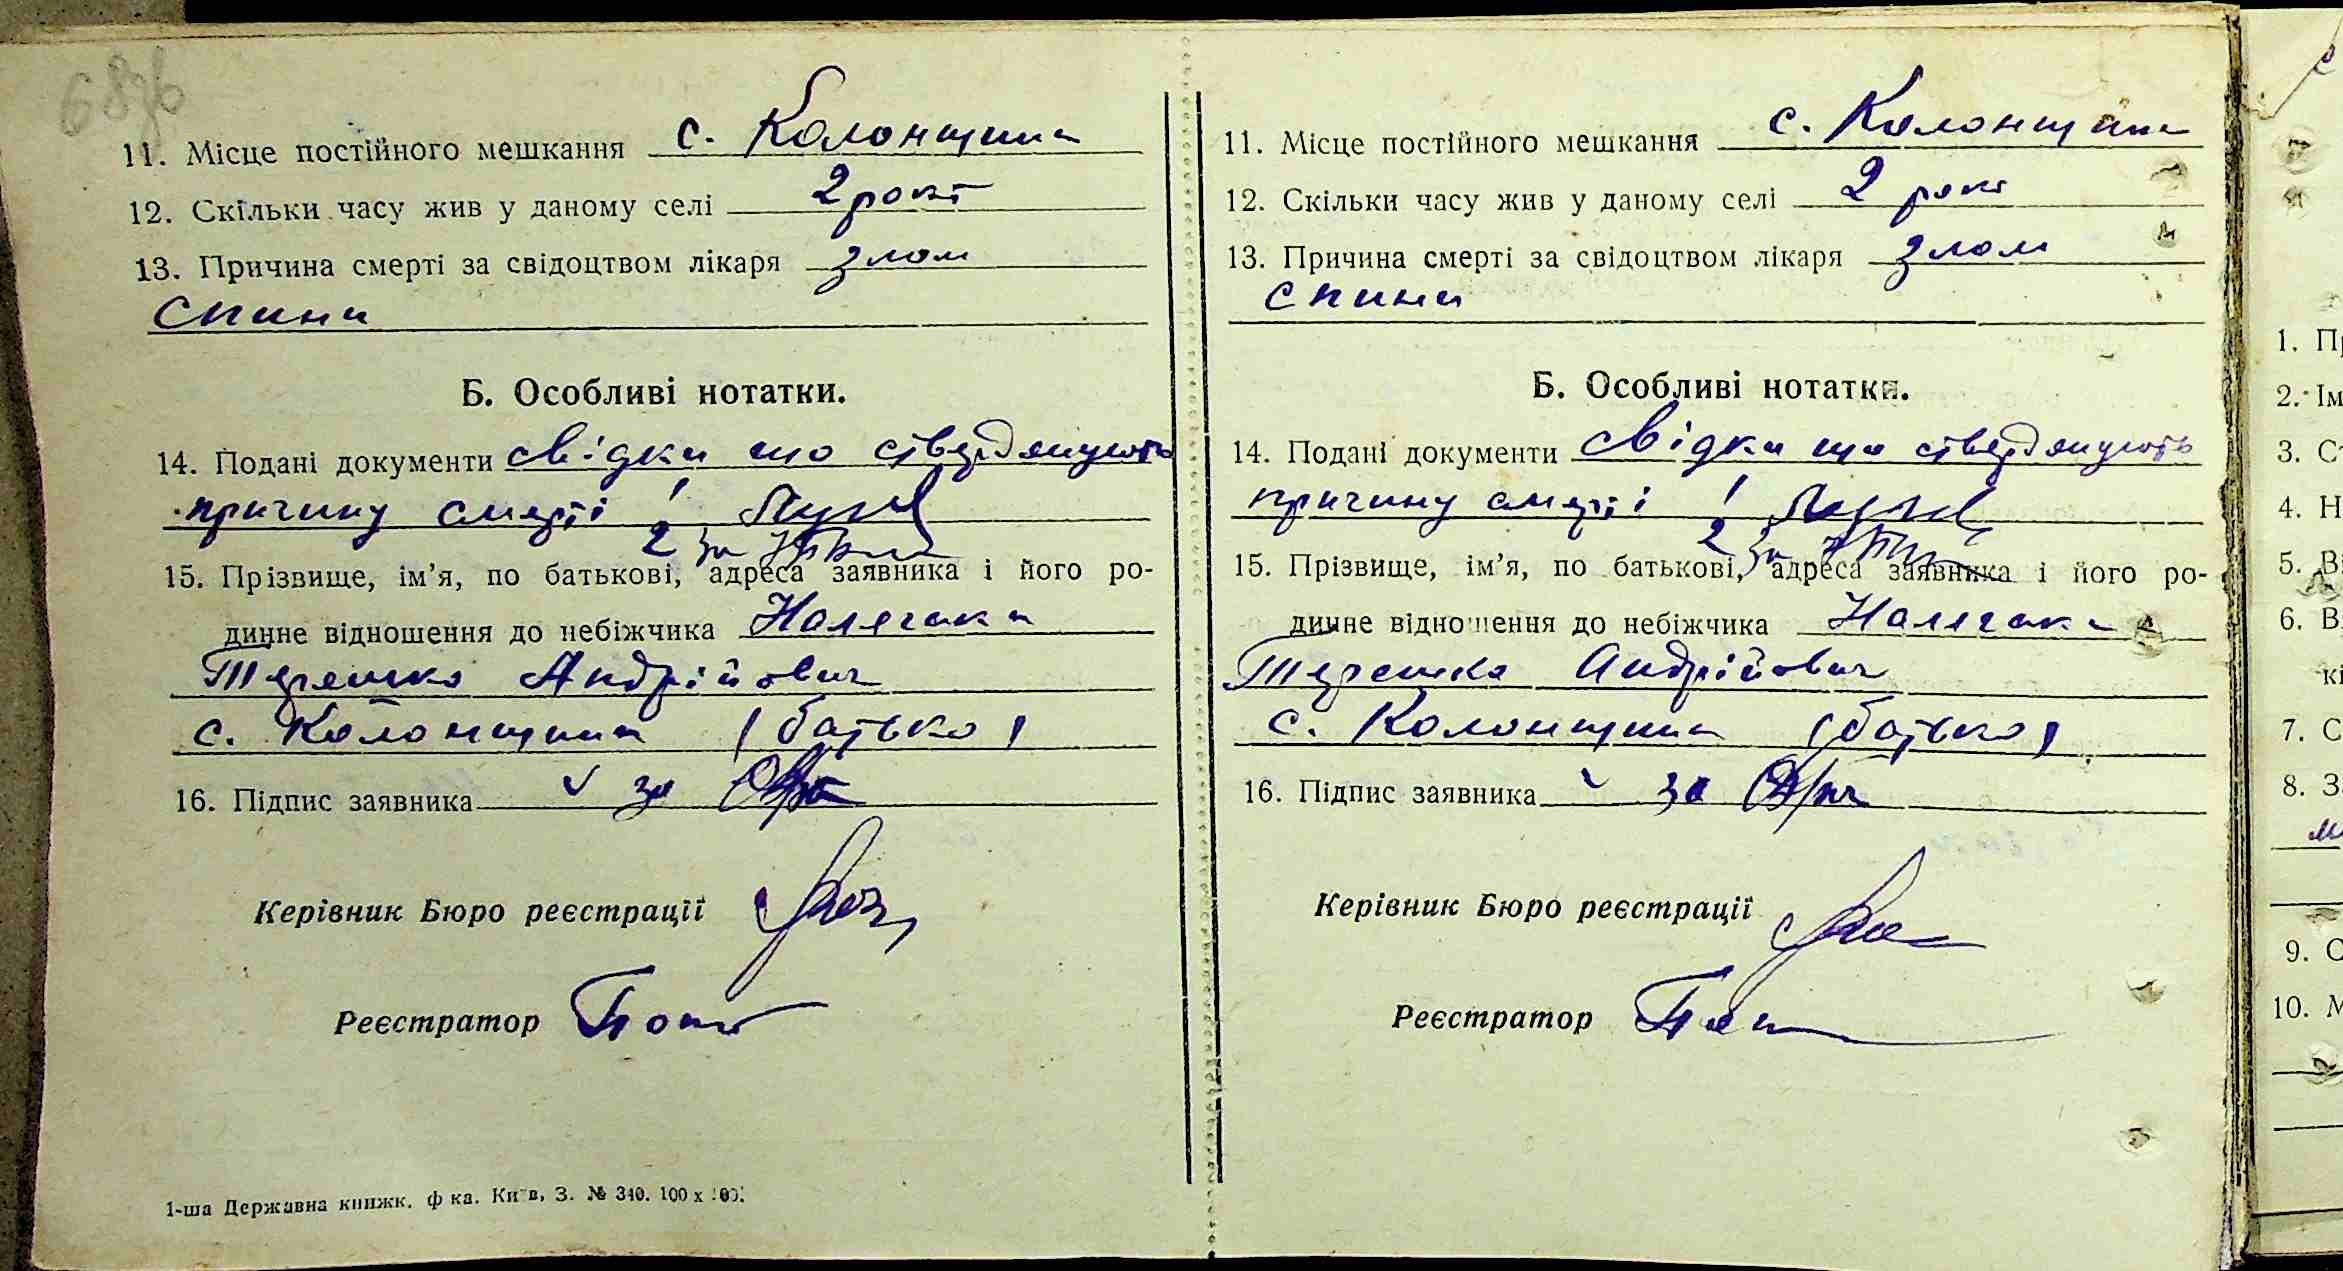 68зв
11. Місце постійного мешкання с. Колонщина
12. Скільки часу жив у даному селі 2 роки
13. Причина смерті за свідоцтвом лікаря злом
спини
Б. Особливі нотатки.
14. Подані документи свідки що стверджують
причину смерті 1
2 за
15. Прізвище, ім'я, по батькові, адреса заявника і його ро-
динне відношення до небіжчика
Терешко Андрійович
с. Колонщина (батько)
16. Підпис заявника за
Керівник Бюро реєстрації
Реєстратор
1-ша Державна книжк. ф-ка. Київ, З. № 340. 100 x
11. Місце постійного мешкання с. Колонщина
12. Скільки часу жив у даному селі 2 роки
13. Причина смерті за свідоцтвом лікаря злом
спини
Б. Особливі нотатки.
14. Подані документи свідки що стверджують
причину смерті 1
2 за
15. Прізвище, ім'я, по батькові, адреса заявника і його ро-
динне відношення до небіжчика
Терешко Андрійович
с. Колонщина (батько)
16. Підпис заявника за
Керівник Бюро реєстрації
Реєстратор
1. Пр
2. Ім
3. Ст
4. Н
5. Ві
6. В
кі
7. С
8. З
9. С
10. М